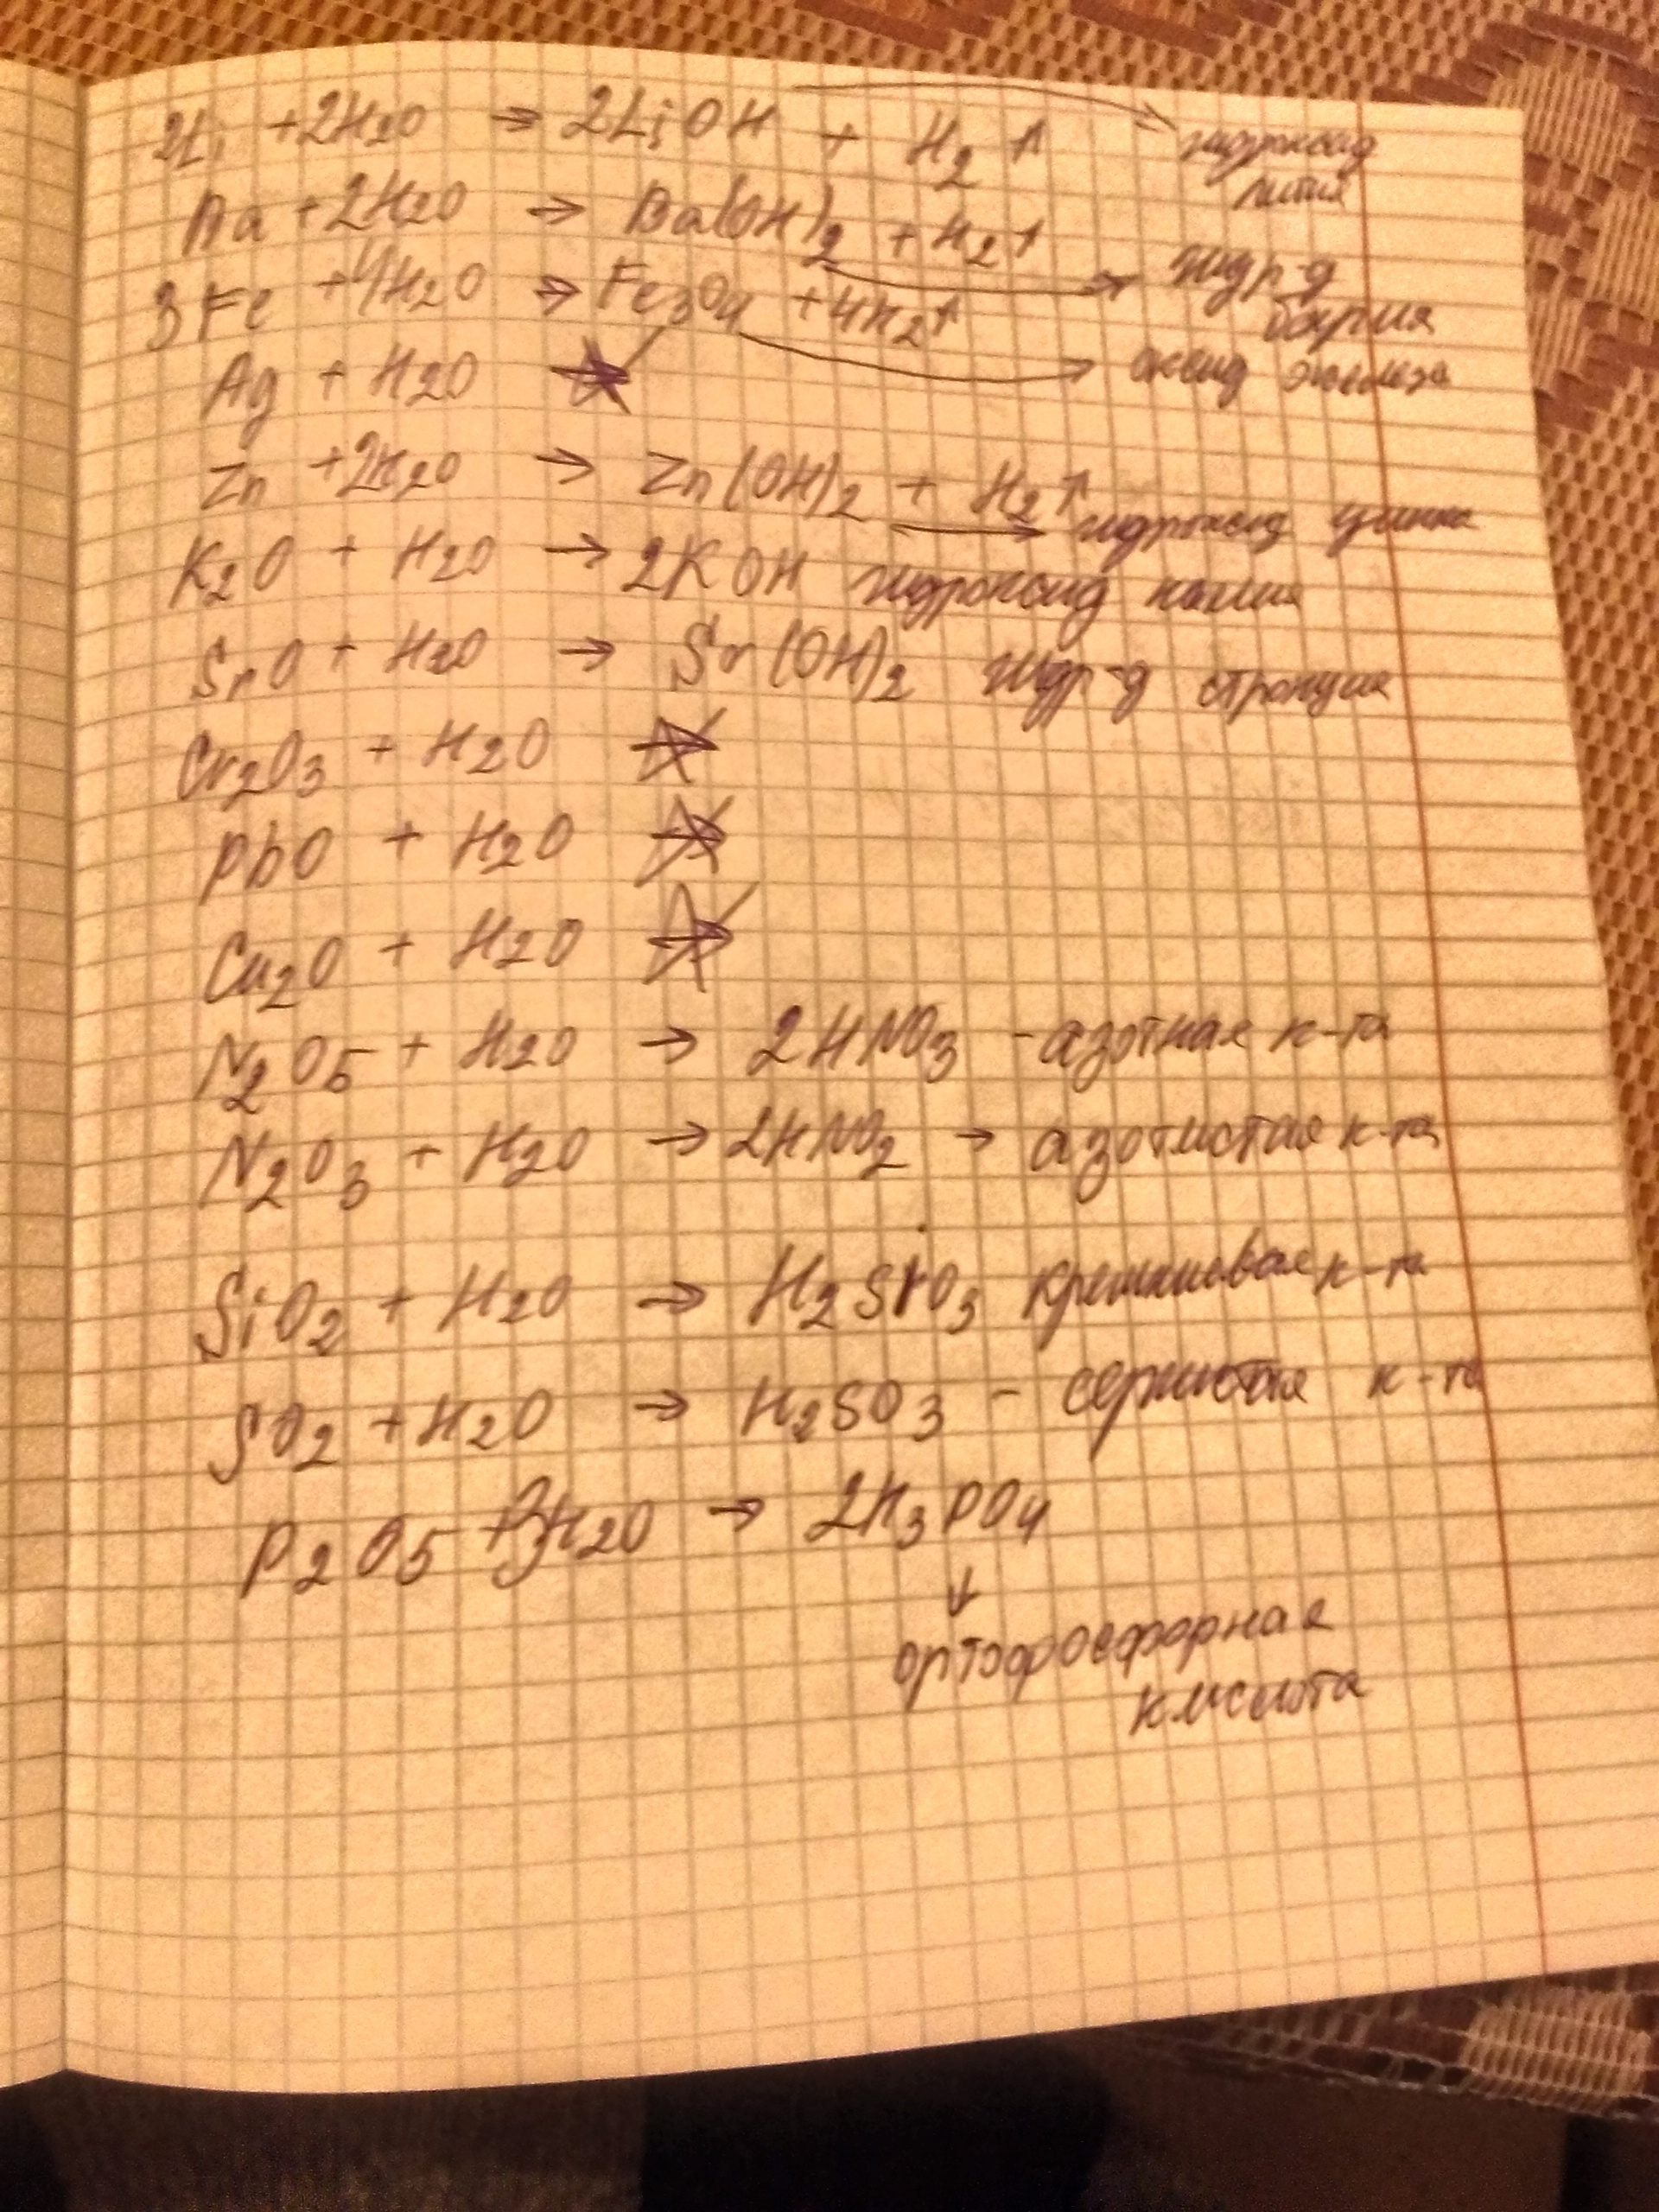 2Li + 2H2O → 2LiOH + H2↑ гидроксид
лития
Ba + 2H2O → Ba(OH)2 + H2↑ гидр-д
бария
3Fe + 4H2O → Fe3O4 + 4H2↑ оксид железа
Ag + H2O →
Zn + 2H2O → Zn(OH)2 + H2↑ гидроксид цинка
K2O + H2O → 2KOH гидроксид калия
SrO + H2O → Sr(OH)2 гидр-д стронция
Cr2O3 + H2O →
PbO + H2O →
Cu2O + H2O →
N2O5 + H2O → 2HNO3 - азотная к-та
N2O3 + H2O → 2HNO2 → азотистая к-та
SiO2 + H2O → H2SiO3 кремниевая к-та
SO2 + H2O → H2SO3 - сернистая к-та
P2O5 + 3H2O → 2H3PO4
↓
ортофосфорная
кислота